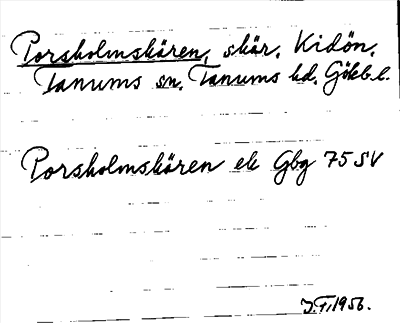 Porsholmskären, skär, Kidön,
Tanums sn, Tanums hd, Göteb. l.
Porsholmskären ek Gbg 75 SV
J.F. 1956.